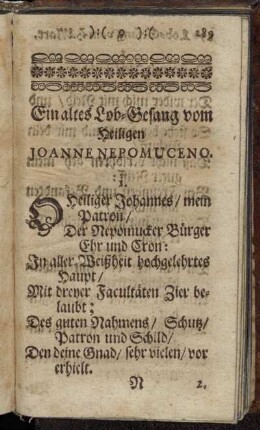 ):( 8 ):( 289
Ein altes Lob-Gesang vom
Heiligen
JOANNE NEPOMUCENO.
I.
O Heiliger Johannes / mein
Patron /
Der Nepomucker Bürger
Ehr und Cron:
In aller Weißheit hochgelehrtes
Haupt /
Mit dreyer Facultäten Zier be-
laubt;
Des guten Nahmens / Schutz /
Patron und Schild /
Den deine Gnad / sehr vielen / vor
erhielt.
N 2.